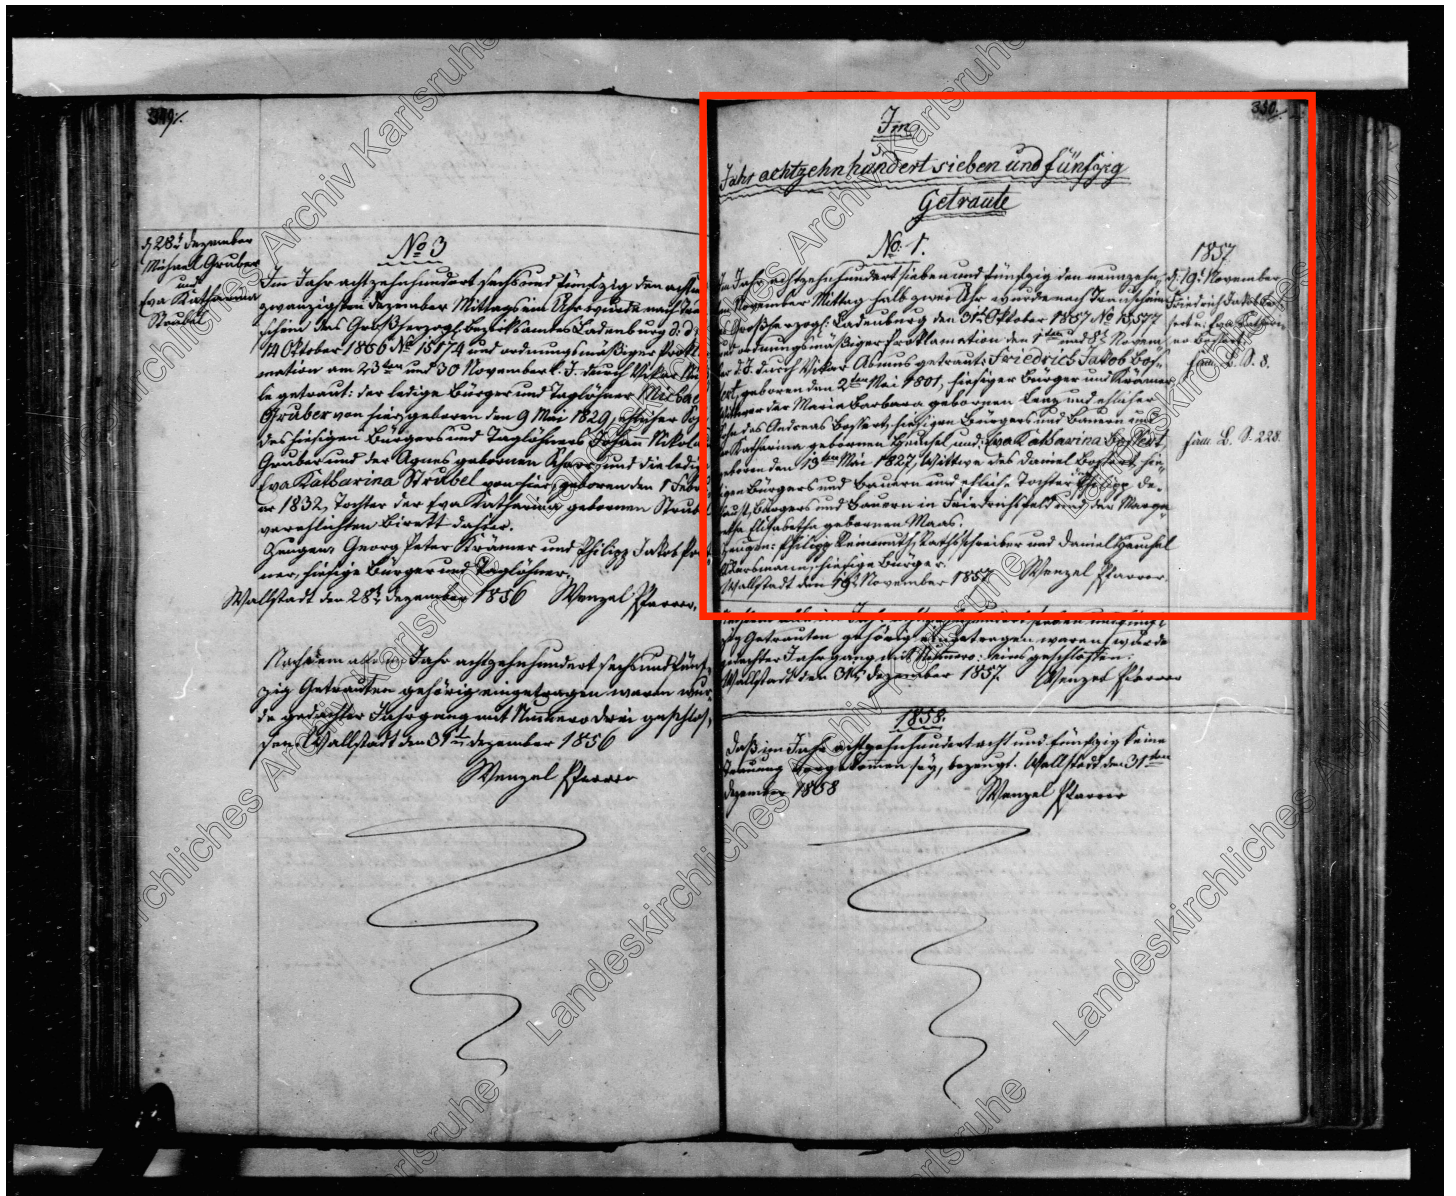 349.
d. 28t Dezember
Michael Gruber
und
Eva Katharina
Strubel
No 3
Im Jahr achtzehnhundert sechs und fünfzig den acht und
zwanzigsten Dezember Mittags ein Uhr wurde nach Trau
schein des Großherzogl. Bezirksamtes Ladenburg d. d.
14 Oktober 1856 No 15174 und ordnungsmäßiger Prokla
mation am 23ten und 30 November l. J. durch Vikar
getraut: der ledige Bürger und Taglöhner Michael
Gruber von hier, geboren den 9 Mai 1829, ehelicher Sohn
des hiesigen Bürgers und Taglöhners Johann Nikolaus
Gruber und der Agnes gebornen und die ledige
Eva Katharina Strubel von hier, geboren den 1 Febru
ar 1832, Tochter der Eva Katharina gebornen Strubel
verehlichten Birett dahier.
Zeugen: Georg Peter Krämer und Philipp Jakob
hiesige Bürger und Taglöhner.
Wallstadt den 28t Dezember 1856 Wenzel Pfarrer.
Nachdem alle im Jahr achtzehnhundert sechs und fünf
zig Getrauten gehörig eingetragen waren wur
de gedachter Jahrgang mit Numero drei geschlos
sen. Wallstadt den 31t Dezember 1856
Wenzel Pfarrer
350.
Im
Jahr achtzehnhundert sieben und fünfzig
Getraute
No. 1.
Im Jahr achtzehnhundert sieben und fünfzig den neunzehn
ten November Mittag halb zwei Uhr wurde nach Trauschein
des Großherzogl. Ladenburg den 31t Oktober 1857 No 15577
und ordnungsmäßiger Proklamation den 1ten und 8t Novem
ber d. J. durch Vikar Asmus getraut: Friedrich Jakob Bos
sert, geboren den 2ten Mai 1801, hiesiger Bürger und Krämer
Wittwer der Maria Barbara gebornen Lenz und ehelicher
Sohn des Andreas Bossert, hiesigen Bürgers und Bauern und
der Katharina gebornen Heuchel und: Eva Katharina Bossert
geboren den 13ten Mai 1827, Wittwe des Daniel Bossert, hie
sigen Bürgers und Bauern und eheliche Tochter Philipp De
haust, Bürgers und Bauern in Friedrichsfeld und der Marga
retha Elisabetha gebornen Maas.
Zeugen: Philipp Reinmuth, Rathsschreiber und Daniel Heuchel
Ackersmann, hiesige Bürger.
Wallstadt den 19t November 1857 Wenzel Pfarrer.
1857
d. 19t November
Friedrich Jakob Bos
sert u. Eva Kathari
na Bossert.
Fam. B. S. 8.
Fam. B. S. 228.
Nachdem alle im Jahr achtzehnhundert sieben und fünf
zig Getrauten gehörig eingetragen waren, wurde
gedachter Jahrgang mit Numero: eins geschlossen.
Wallstadt den 31t Dezember 1857 Wenzel Pfarrer
1858.
Daß im Jahr achtzehnhundert acht und fünfzig keine
Trauung vorgekommen sey, bezeugt. Wallstadt den 31ten
Dezember 1858 Wenzel Pfarrer
Landeskirchliches Archiv Karlsruhe